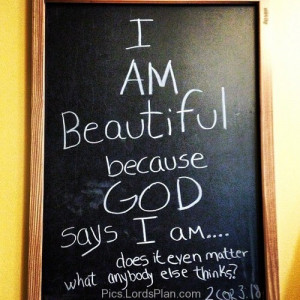 I
AM
Beautiful
because
GOD
says I am....
does it even matter
what anybody else thinks?
2 cor 3.18
Pics.LordsPlan.com